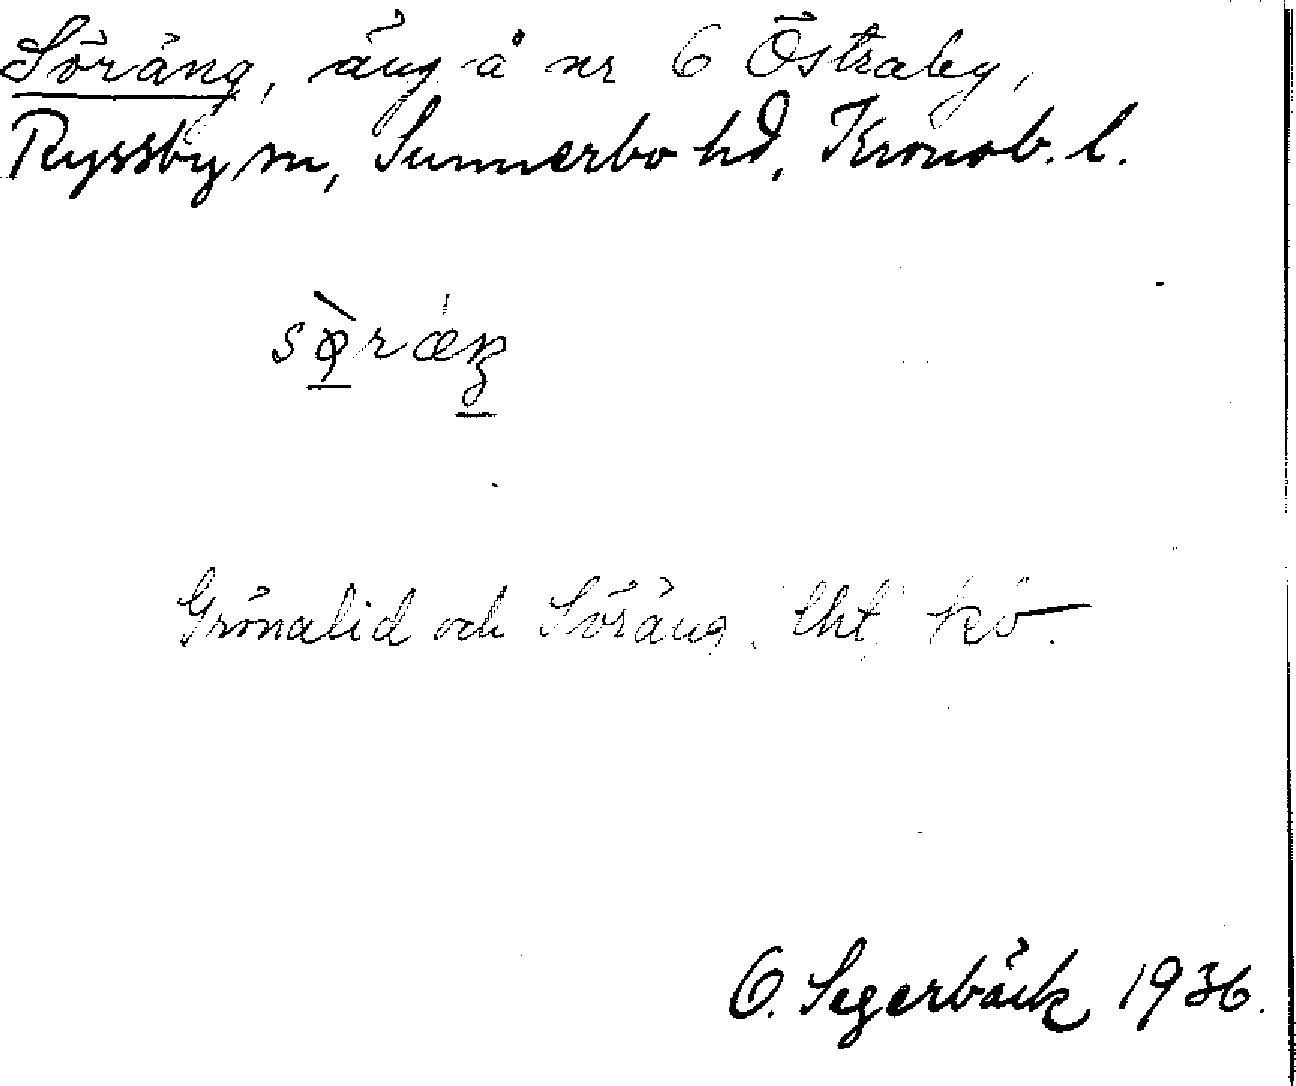 Söräng, äng å nr 6 Östraby,
Ryssby sn, Sunnerbo hd, Kronob. l.
Grönalid och Söräng, lht kö.
O. Segerbäck 1936.